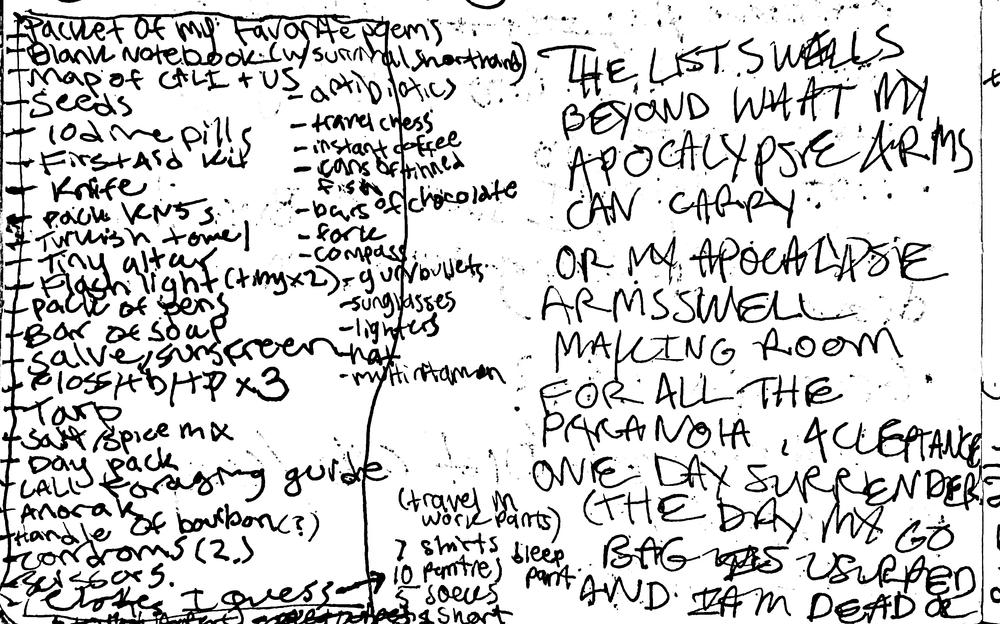 - Packet of my favorite poems
- Blank notebook (w/ survival shorthand)
- Map of CALI + US
- Seeds
- Iodine pills
- First Aid kit
- Knife
- pack KN95s
- Turkish towel
- Tiny altar
- Flash light (+ tiny x2)
- pack of pens
- Bar of soap
- Salve, sunscreen
- Floss + b/TP x3
- Tarp
- Salt/spice mix
- Day pack
- CALI Foraging guide
- Anorak
- Handle of bourbon (?)
- condroms (2)
- scissors.
- clothes I guess →
- antibiotics
- travel chess
- instant coffee
- cans of tinned
fish
- bars of chocolate
- fork
- compass
- gun/bullets
- sunglasses
- lighters
- hat
- multivitamin
(travel in
work pants)
7 shirts
10 panties
5 socks
short
sleep
pant.
THE LIST SWELLS
BEYOND WHAT MY
APOCALYPSIE ARMS
CAN CARRY.
OR MY APOCALAPSIE
ARMS SWELL
MAKING ROOM
FOR ALL THE
PARANOIA, ACCEPTANCE
ONE DAY SURRENDER
(THE DAY MY GO
BAG IS USURPED
AND I AM DEAD OR